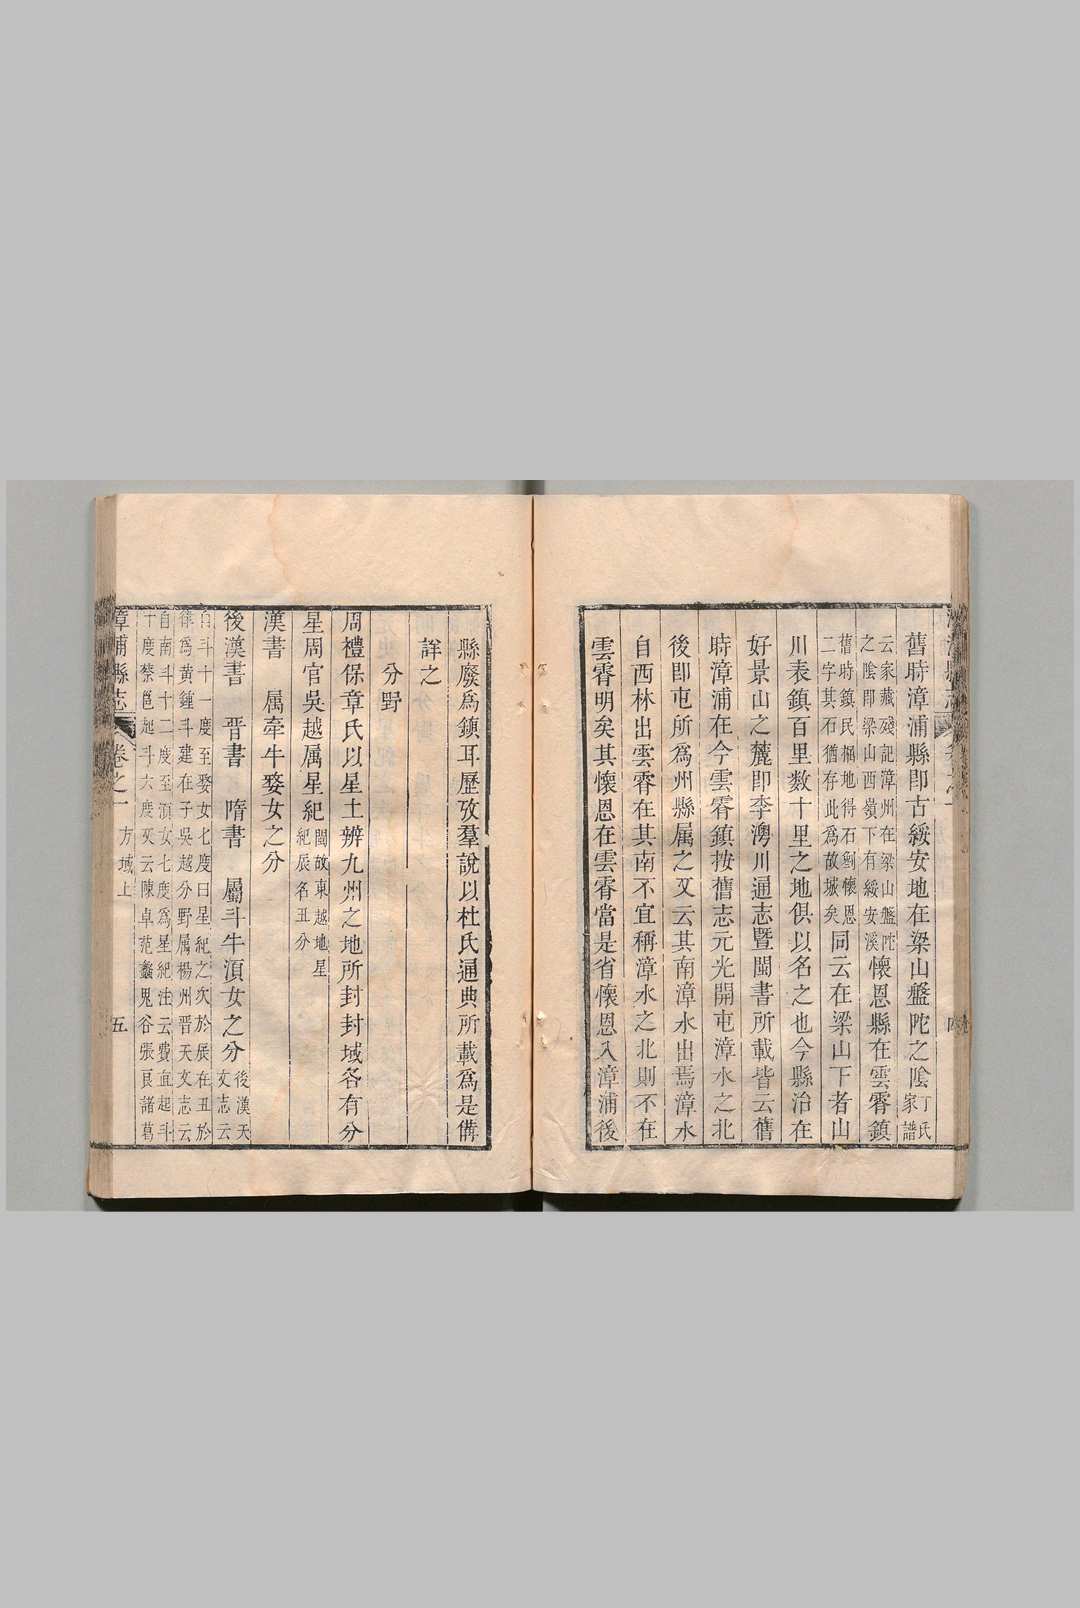 舊時漳浦縣即古綏安地在梁山盤陀之陰丁氏家譜
云家藏殘記漳州在梁山盤陀
之陰即梁山西嶺下有綏安溪懷恩縣在雲霄鎮
舊時鎮民掘地得石劖懷恩
二字其石猶存此為故城矣同云在梁山下者山
川表鎮百里数十里之地俱以名之也今縣治在
好景山之麓即李澳川通志暨閩書所載皆云舊
時漳浦在今雲霄鎮按舊志元光開屯漳水之北
後即屯所為州縣属之又云其南漳水出焉漳水
自西林出雲霄在其南不宜稱漳水之北則不在
雲霄明矣其懷恩在雲霄當是省懷恩入漳浦後
縣廢為鎮耳歷攷羣說以杜氏通典所載為是備
詳之
分野
周禮保章氏以星土辨九州之地所封封域各有分
星周官吳越属星紀閩故東越地星
紀辰名丑分
漢書 属牽牛婺女之分
後漢書 晋書 隋書 屬斗牛須女之分後漢天
文志云
自斗十一度至婺女七度曰星紀之次於辰在丑於
律為黄鍾斗建在子吳越分野属楊州晋天文志云
自南斗十二度至湏女七度為星紀注云費直起斗
十度蔡邕起斗六度又云陳卓范蠡鬼谷張良諸葛
漳浦縣志 卷之一 方域上 五